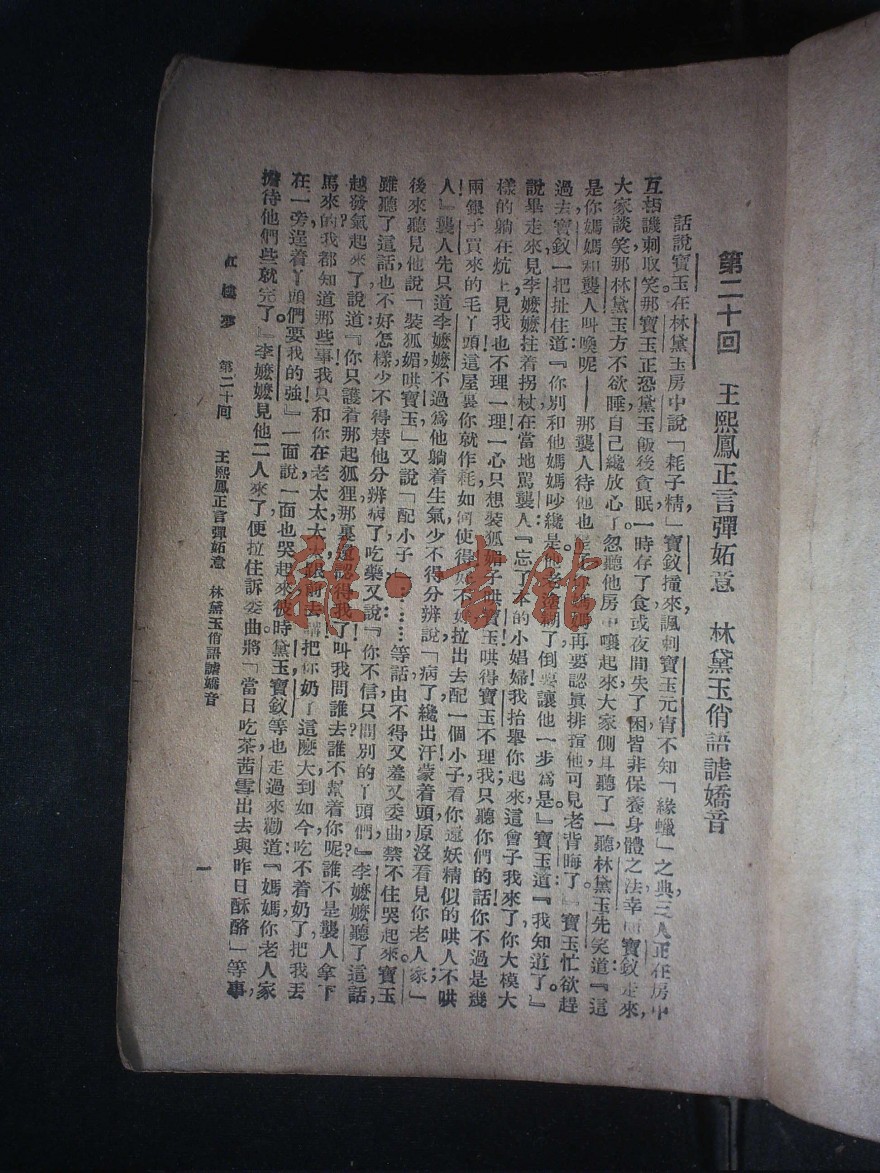 第二十回　王熙鳳正言彈妬意　林黛玉俏語謔嬌音
話說寶玉在林黛玉房中說「耗子精」寶釵撞來，諷刺寶玉元宵不知「綠蠟」之典，三人正在房中
互相譏刺取笑。那寶玉正恐黛玉飯後貪眠，一時存了食，或夜間失了困，皆非保養身體之法；幸寶釵走來，
大家談笑，那林黛玉方不欲睡，自己纔放心了。忽聽他房中嚷起來，大家側耳聽了一聽，林黛玉先笑道：『這
是你媽媽和襲人叫喚呢——那襲人待他也罷了，你媽媽再要認眞排揎他，可見老背晦了。』寶玉忙欲趕
過去，寶釵一把扯住道：『你別和他媽媽吵纔是，他老糊塗了，倒要讓他一步爲是。』寶玉道：『我知道了。』
說畢走來，見李嬷嬷拄着拐杖在當地罵襲人：『忘了本的小娼婦！我抬舉你起來，這會子我來了，你大模大
樣的躺在炕上，見我也不理一理。一心只想裝狐媚子哄寶玉，哄得寶玉不理我，只聽你們的話。你不過是幾
兩銀子買來的毛丫頭，這屋裏你就作耗，如何使得！好不好拉出去配一個小子，看你還妖精似的哄人不哄
人！』襲人先只道李嬷嬷不過爲他躺着生氣，少不得分辨說：「病了，纔出汗，蒙着頭，原沒看見你老人家」；
後來聽見他說「裝狐媚哄寶玉」，又說「配小子」……等話，由不得又羞又委曲，禁不住哭起來。寶玉
雖聽了這話，也不好怎樣，少不得替他分辨病了吃藥，又說：『你不信，只問別的丫頭們。』李嬷嬷聽了這話，
越發氣起來了，說道：『你只護着那起狐狸，那裏還認得我了？叫我問誰去？誰不幫着你呢？誰不是襲人拿下
馬來的？我都知道那些事！我只和你在老太太太太跟前去講！把你奶了這麽大，到如今吃不着奶了，把我丟
在一旁，逞着丫頭們要我的強！』一面說，一面也哭起來。彼時黛玉寶釵等也走過來勸道：『媽媽，你老人家
擔待他們些就完了。』李嬷嬷見他二人來了，便拉住訴委曲，將「當日吃茶，茜雪出去，與昨日酥酪」等事，
紅樓夢　第二十回　王熙鳳正言彈妬意　林黛玉俏語謔嬌音　一
雜·書館